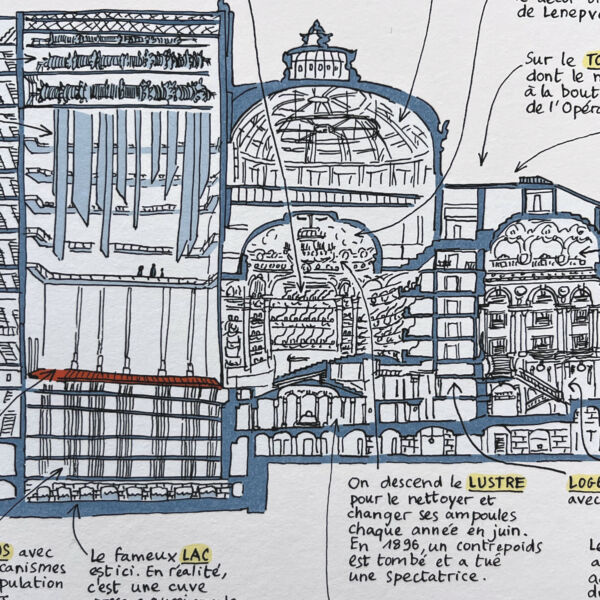 de Lenepv
Sur le TO
dont le m
à la bout
de l'Opéra
On descend le LUSTRE
pour le nettoyer et
changer ses ampoules
chaque année en juin.
En 1896, un contrepoids
est tombé et a tué
une spectatrice.
LOGE
avec
OS avec
canismes
pulation
Le fameux LAC
est ici. En réalité,
c'est une cuve
Le